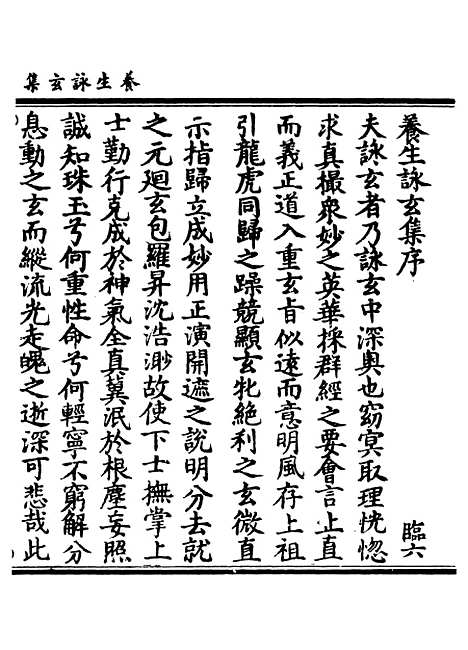 養生詠玄集
養生詠玄集序
臨六
夫詠玄者乃詠玄中深奥也窈冥取理恍惚
求真撮衆妙之英華採群經之要會言止直
而義正道入重玄旨似遠而意明風存上祖
引龍虎同歸之躁競顯玄牝絶利之玄微直
示指歸立成妙用正演開遮之說明分去就
之元廻玄包羅昇沈浩渺故使下士撫掌上
士勤行克成於神氣全真冀泯於根塵妄照
誠知珠玉兮何重性命兮何輕寧不窮解分
息動之玄而縱流光走魄之逝深可悲哉此